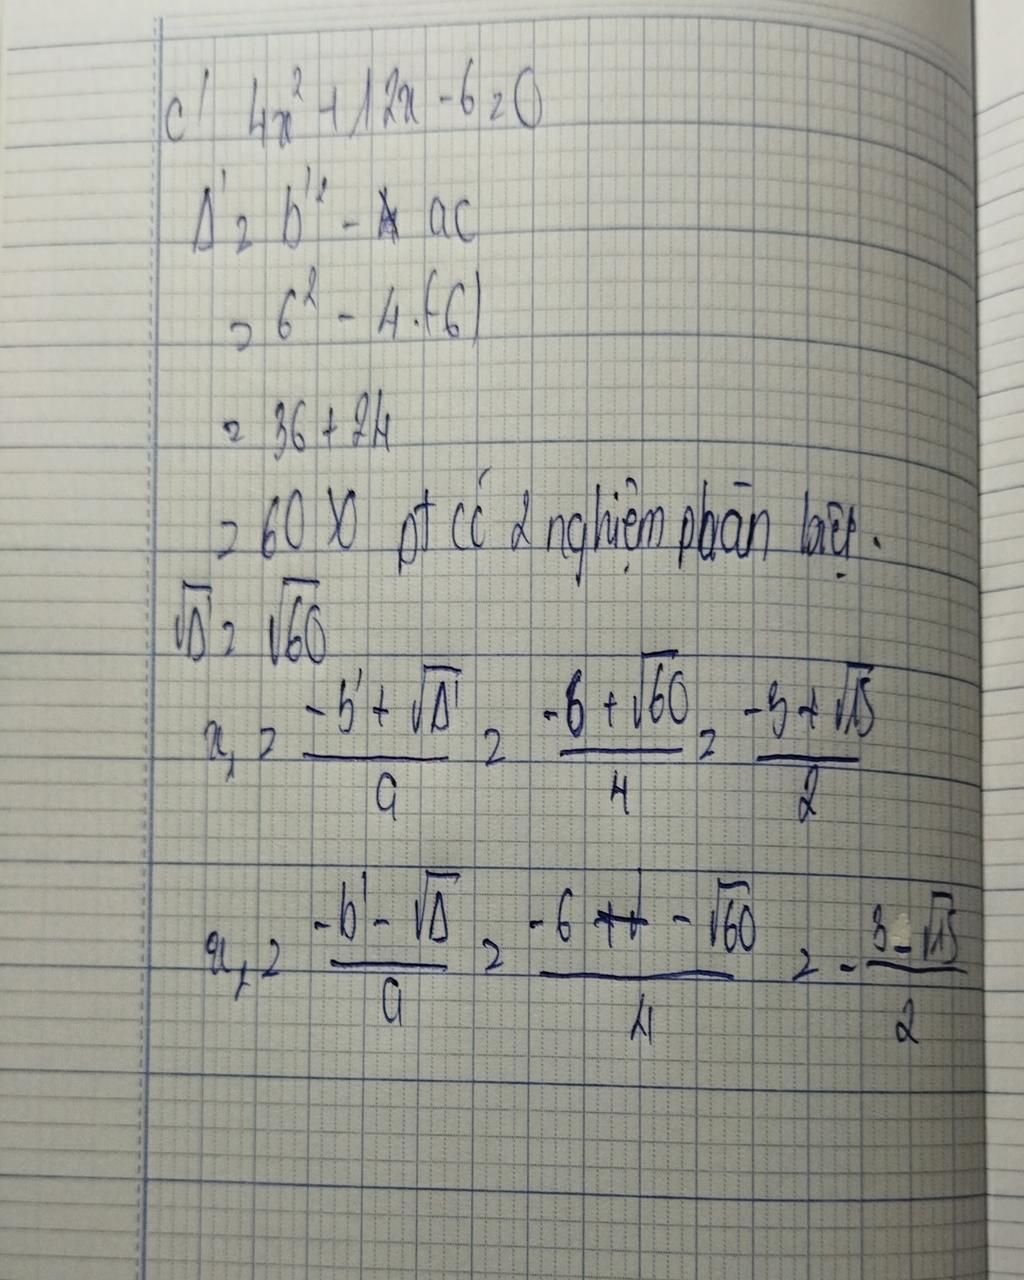 c) 4x² + 12x - 6 = 0
Δ' = b'² - ac
= 6² - 4.(-6)
= 36 + 24
= 60 > 0 pt có 2 nghiệm phân biệt.
√Δ' = √60
x₁ = (-b' + √Δ')/a = (-6 + √60)/4 = (-3 + √15)/2
x₂ = (-b' - √Δ)/a = (-6 - √60)/4 = -(3 - √15)/2